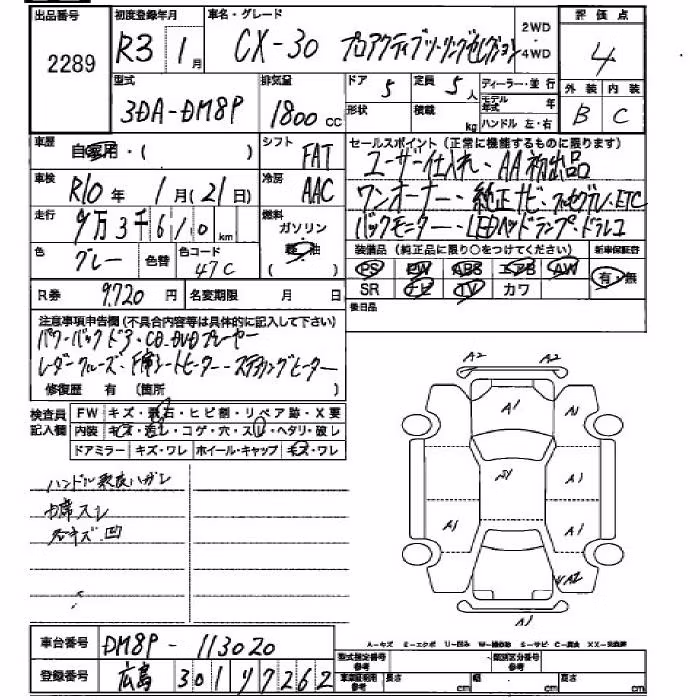 出品番号 初度登録年月 車名・グレード 2WD・4WD 評価点
2289 R3年 1月 CX-30 プロアクティブツーリングセレクション 4
外装 内装
B C
型式 排気量 ドア 定員 ディーラー・並行
3DA-DM8P 1800cc 5 5人 モデル年式 年
形状 積載 kg ハンドル 左・右
車歴 自家用・( ) シフト FAT セールスポイント(正常に機能するものに限ります)
ユーザー仕入れ・AA初出品
車検 R10年 1月(21日) 冷房 AAC ワンオーナー・純正ナビ・フルセグTV・ETC
走行 9万3千610km 燃料 ガソリン 軽油 ( ) バックモニター・LEDヘッドランプ・ドラレコ
色 グレー 色替 色コード 47C
装備品(純正品に限り○をつけてください) 新車保証書
PS PW ABS エアB AW 有・無
SR ナビ TV カワ
R券 9720円 名変期限 月 日 後日品
注意事項申告欄(不具合内容等は具体的に記入して下さい)
パワーバックドア・CD・DVDプレーヤー
レーダークルーズ・F席シートヒーター・ステアリングヒーター
修復歴 有 (箇所 )
検査員記入欄 FW キズ・飛石・ヒビ割・リペア跡・X要
内装 キズ・汚レ・コゲ・穴・スレ・ヘタリ・破レ
ドアミラー キズ・ワレ ホイール・キャップ キズ・ワレ
ハンドル表皮ハガレ
内席スレ
キズ・凹
A2 A2
A1 A1
A1
A1 A1
A2
A1
A-キズ E-エクボ U-凹み W-補修跡 S-サビ C-腐食 XX-交換済
車台番号 DM8P-113020
登録番号 広島 301 7262
型式指定番号 類別区分番号
長さ cm 幅 cm 高さ cm